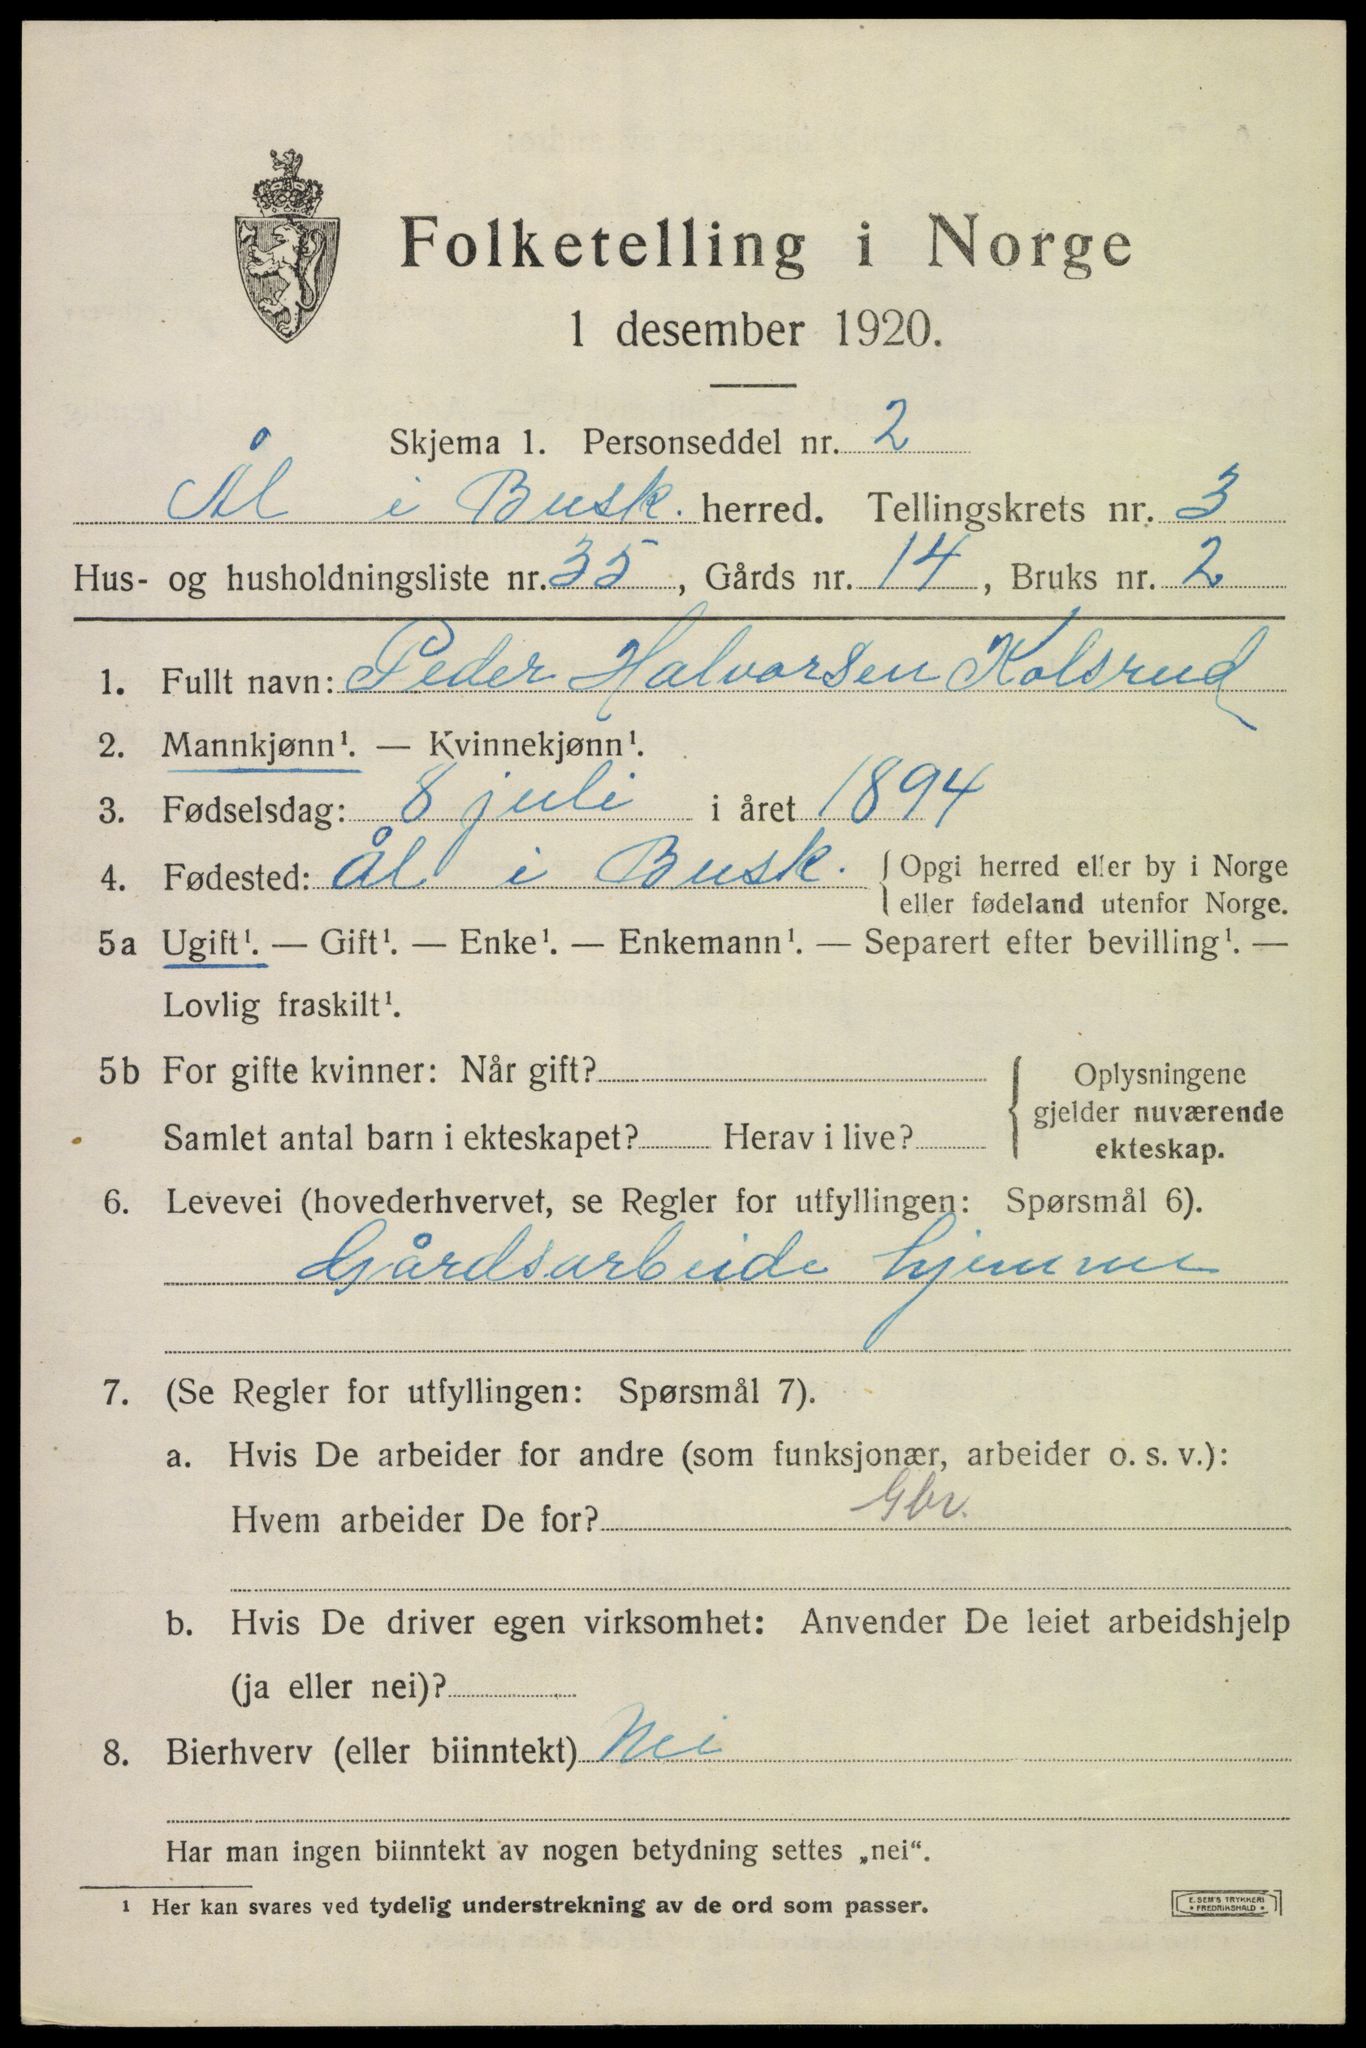 Folketelling i Norge
1 desember 1920.
Skjema 1. Personseddel nr. 2
Ål i Busk. herred. Tellingskrets nr. 3
Hus- og husholdningsliste nr. 35, Gårds nr. 14, Bruks nr. 2
1. Fullt navn: Peder Halvorsen Kolsrud
2. Mannkjønn¹. — Kvinnekjønn¹.
3. Fødselsdag: 8 juli i året 1894
4. Fødested: Ål i Busk. { Opgi herred eller by i Norge
eller fødeland utenfor Norge.
5a Ugift¹. — Gift¹. — Enke¹. — Enkemann¹. — Separert efter bevilling¹. —
Lovlig fraskilt¹.
5b For gifte kvinner: Når gift?
Samlet antal barn i ekteskapet? Herav i live?
{ Oplysningene
gjelder nuværende
ekteskap.
6. Levevei (hovederhvervet, se Regler for utfyllingen: Spørsmål 6).
Gårdsarbeide hjemme
7. (Se Regler for utfyllingen: Spørsmål 7).
a. Hvis De arbeider for andre (som funksjonær, arbeider o. s. v.):
Hvem arbeider De for? Gbr.
b. Hvis De driver egen virksomhet: Anvender De leiet arbeidshjelp
(ja eller nei)?
8. Bierhverv (eller biinntekt) Nei
Har man ingen biinntekt av nogen betydning settes „nei“.
¹ Her kan svares ved tydelig understrekning av de ord som passer.
E. SEM'S TRYKKERI
• FREDRIKSHALD •